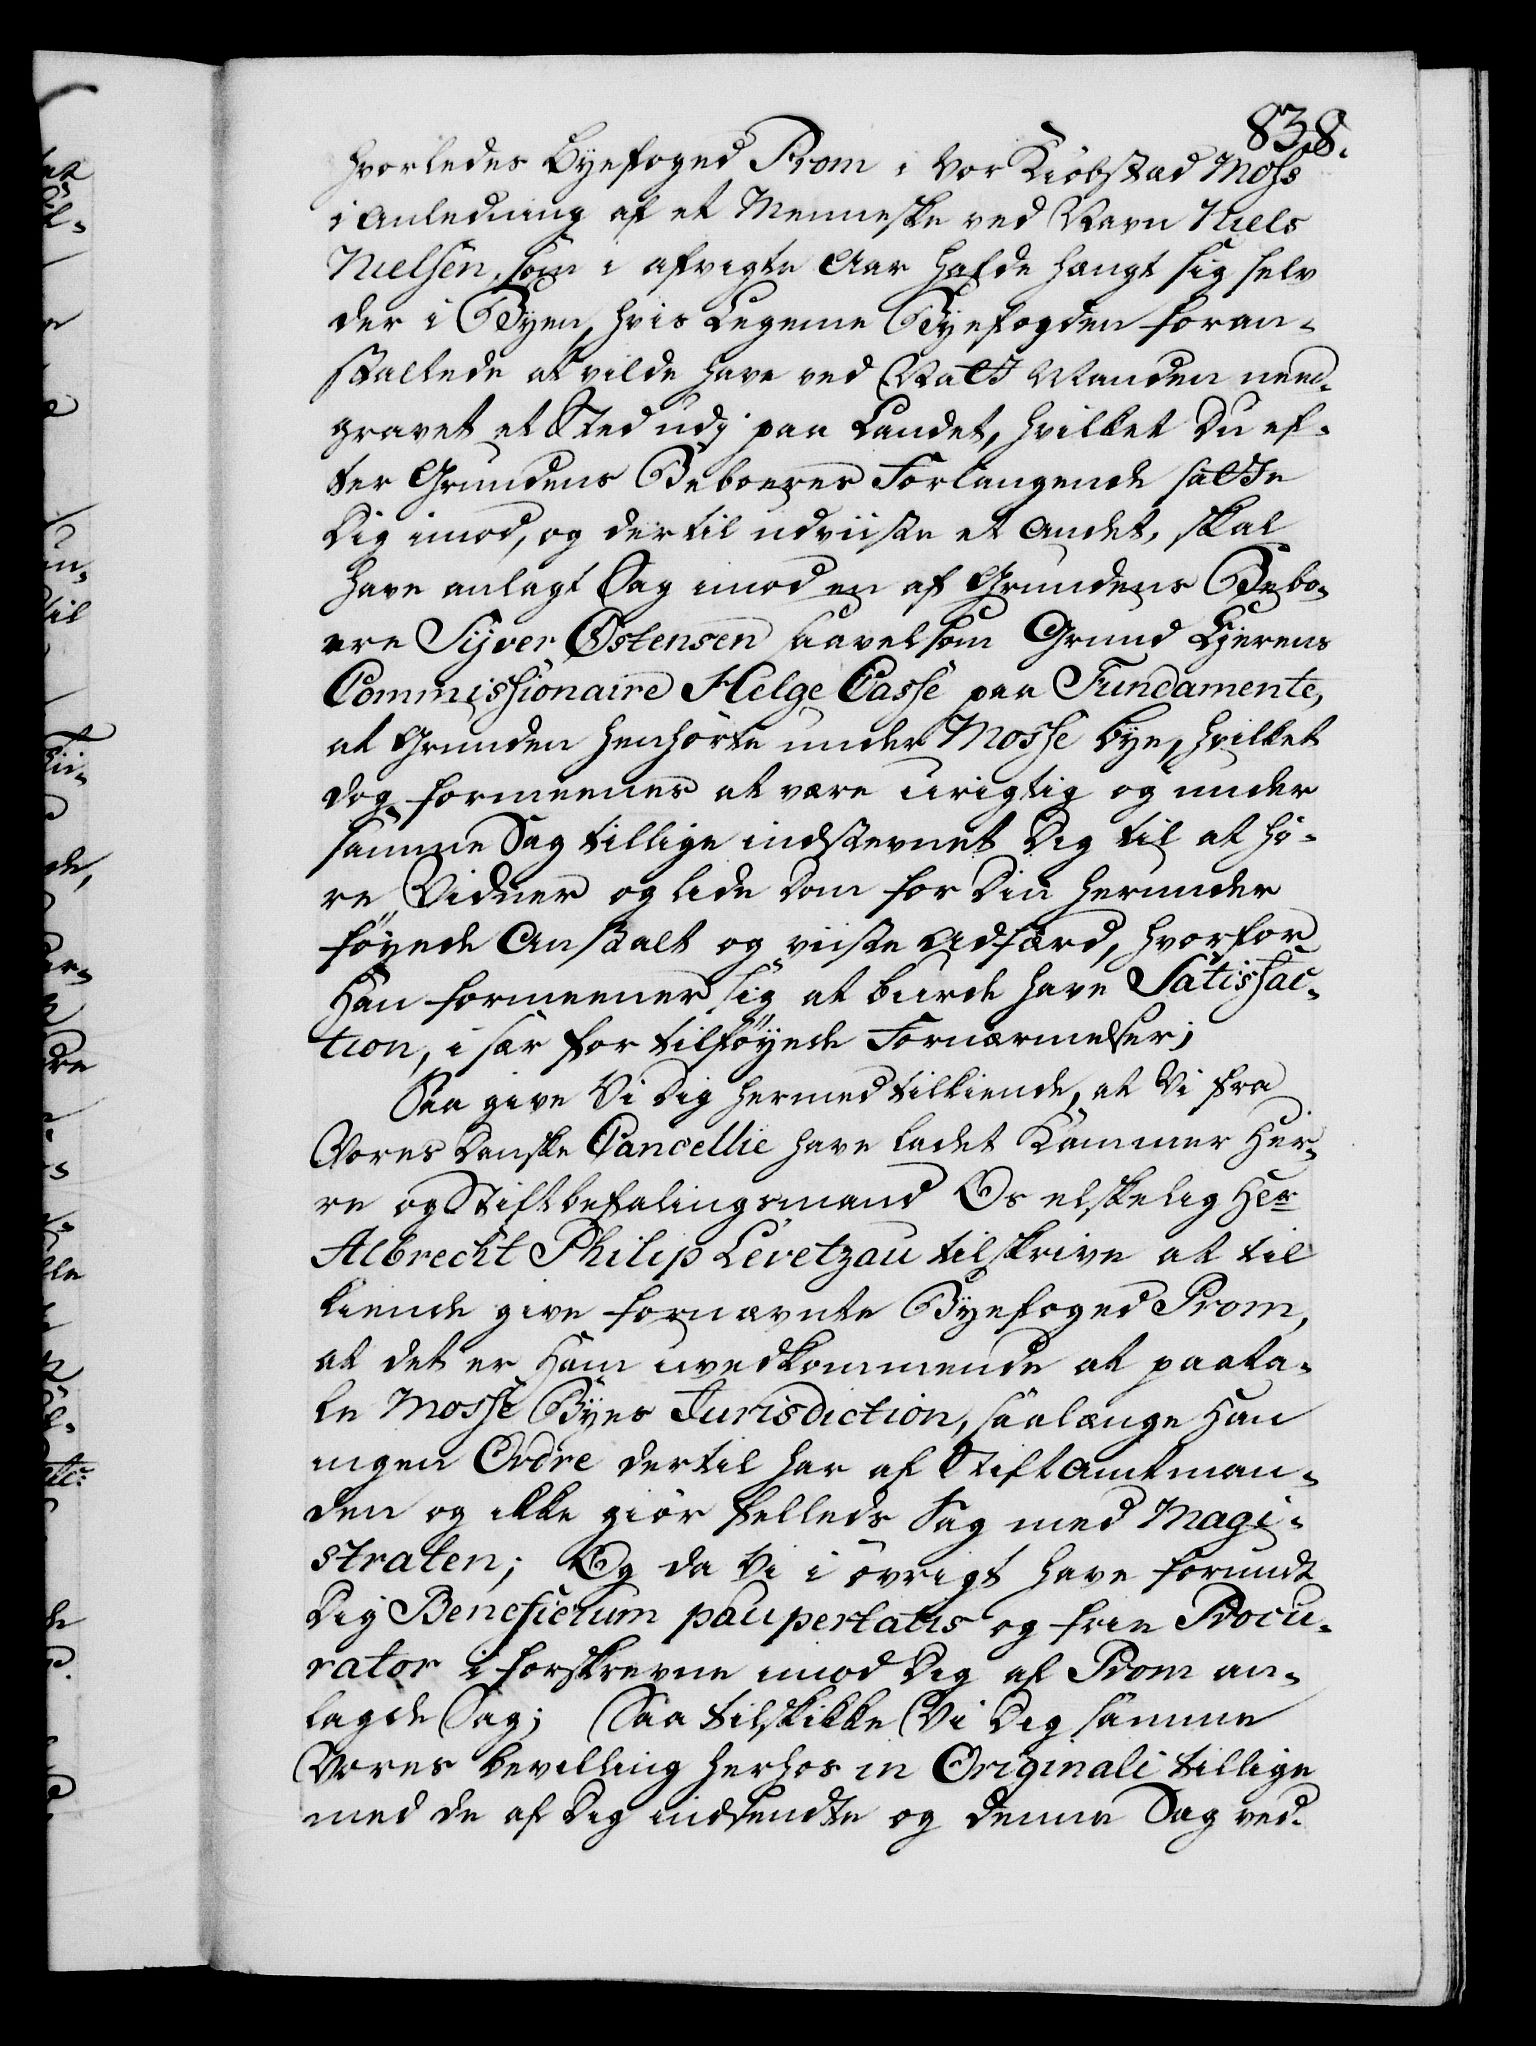 838.
hvorledes Byefoged Prom i vor Kiöbstad Moss
i Anledning af et Menneske ved Navn Niels
Nielsen, som i afvigte Aar hafde hængt sig selv
der i Byen, hvis Legeme Byefogden foran-
staltede at vilde have ved Natt Manden need-
gravet et Sted udj paa Landet, hvilket Du ef-
ter Grundens Beboeres Forlangende satte
Dig imod, og dertil udviiste et andet, skal
have anlagt Sag imod en af Grundens Bebo-
ere Syver Östensen saavelsom Grund Ejerens
Commissionaire Helge Casse paa Fundamente,
at Grunden henhörte under Mosse bye, hvilket
dog formeenes at være urigtig og under
samme Sag tillige indstevnet Dig til at hö-
re Vidner og lide Dom for Din herunder
föyede Anstalt og viiste Adfærd, hvorfor
Han formeener sig at burde have Satisfac-
tion, i sær for tilföyede Fornærmelser;
Saa give Vi Dig hermed tilkiende, at Vi fra
Vores Danske Cancellie have ladet Kammer Her-
re og Stiftbefalingsmand Os elskelig Her
Albrecht Philip Levetzau tilskrive at til
kiende give fornævnte Byefoged Prom,
at det er Ham uvedkommende at paata-
le Mosse Byes Jurisdiction, saalænge Han
ingen Ordre dertil har af Stiftamtman-
den og ikke giör fælleds Sag med Magi-
straten; Og da Vi i övrigt have forundt
Dig Beneficium paupertatis og frie Procu-
rator i forskrevne imod Dig af Prom an-
lagde Sag; Saa tilskikke Vi Dig samme
Vores bevilling herhos in Originali tillige
med de af Dig indsendte og denne Sag ved-